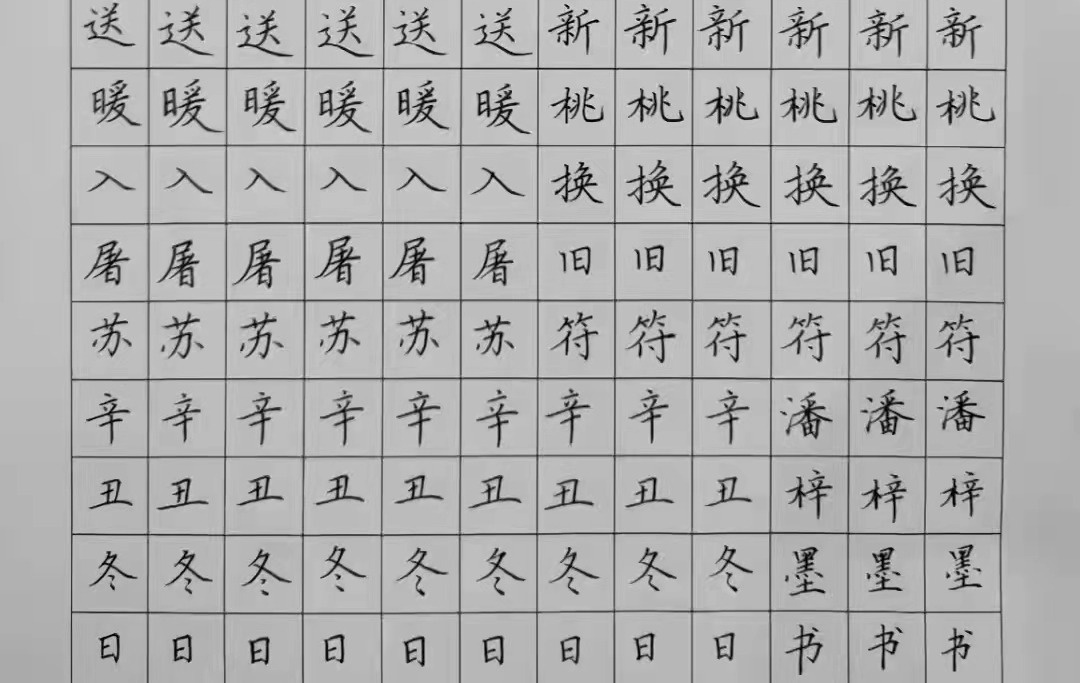 送送送送送送新新新新新新
暖暖暖暖暖暖桃桃桃桃桃桃
入入入入入入换换换换换换
屠屠屠屠屠屠旧旧旧旧旧旧
苏苏苏苏苏苏符符符符符符
辛辛辛辛辛辛辛辛辛潘潘潘
丑丑丑丑丑丑丑丑丑梓梓梓
冬冬冬冬冬冬冬冬冬墨墨墨
日日日日日日日日日书书书